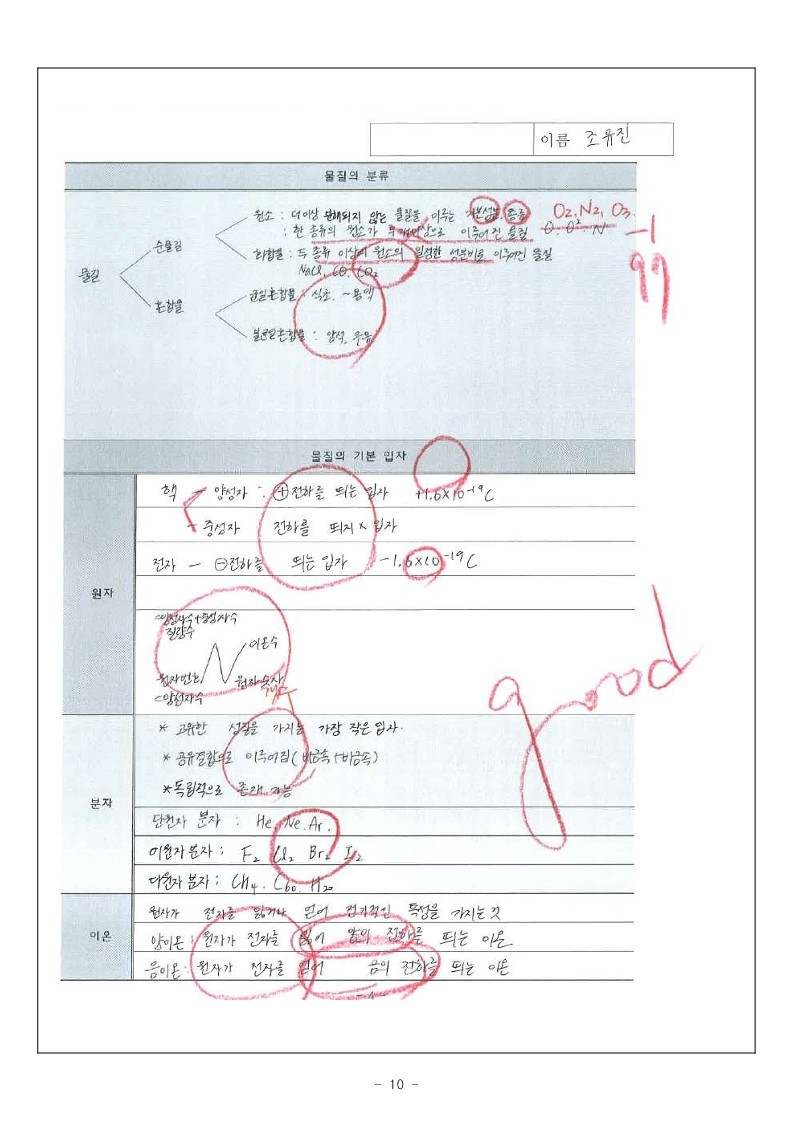 이름 조유진
물질의 분류
원소 : 더이상 분해되지 않는 물질을 이루는 기본성분, 종류 O2, N2, O3
: 한 종류의 원소가 두개이상으로 이루어진 물질 -1
순물질
화합물 : 두 종류 이상의 원소의 일정한 성분비로 이루어진 물질 99
NaCl, CO, CO2
물질
균일혼합물 : 식초, ~용액
혼합물
불균일혼합물 : 암석, 우유
물질의 기본 입자
원자
핵 양성자 : ⊕전하를 띄는 입자 +1.6×10⁻¹⁹C
중성자 전하를 띄지 × 입자
전자 - ⊖전하를 띄는 입자 -1.6×10⁻¹⁹C
=양성자수+중성자수
질량수
이온수
원자번호 원자
=양성자수
good
분자
* 고유한 성질을 가지는 가장 작은 입자.
* 공유결합으로 이루어짐(비금속+비금속)
* 독립적으로 존재 가능
단원자 분자 : He, Ne, Ar.
이원자 분자 : F2 Cl2 Br2 I2
다원자 분자 : CH4, C60, H2O
이온
원자가 전자를 잃거나 얻어 전기적인 특성을 가지는 것
양이온 : 원자가 전자를 잃어 양의 전하를 띄는 이온
음이온 : 원자가 전자를 얻어 음의 전하를 띄는 이온
- 10 -